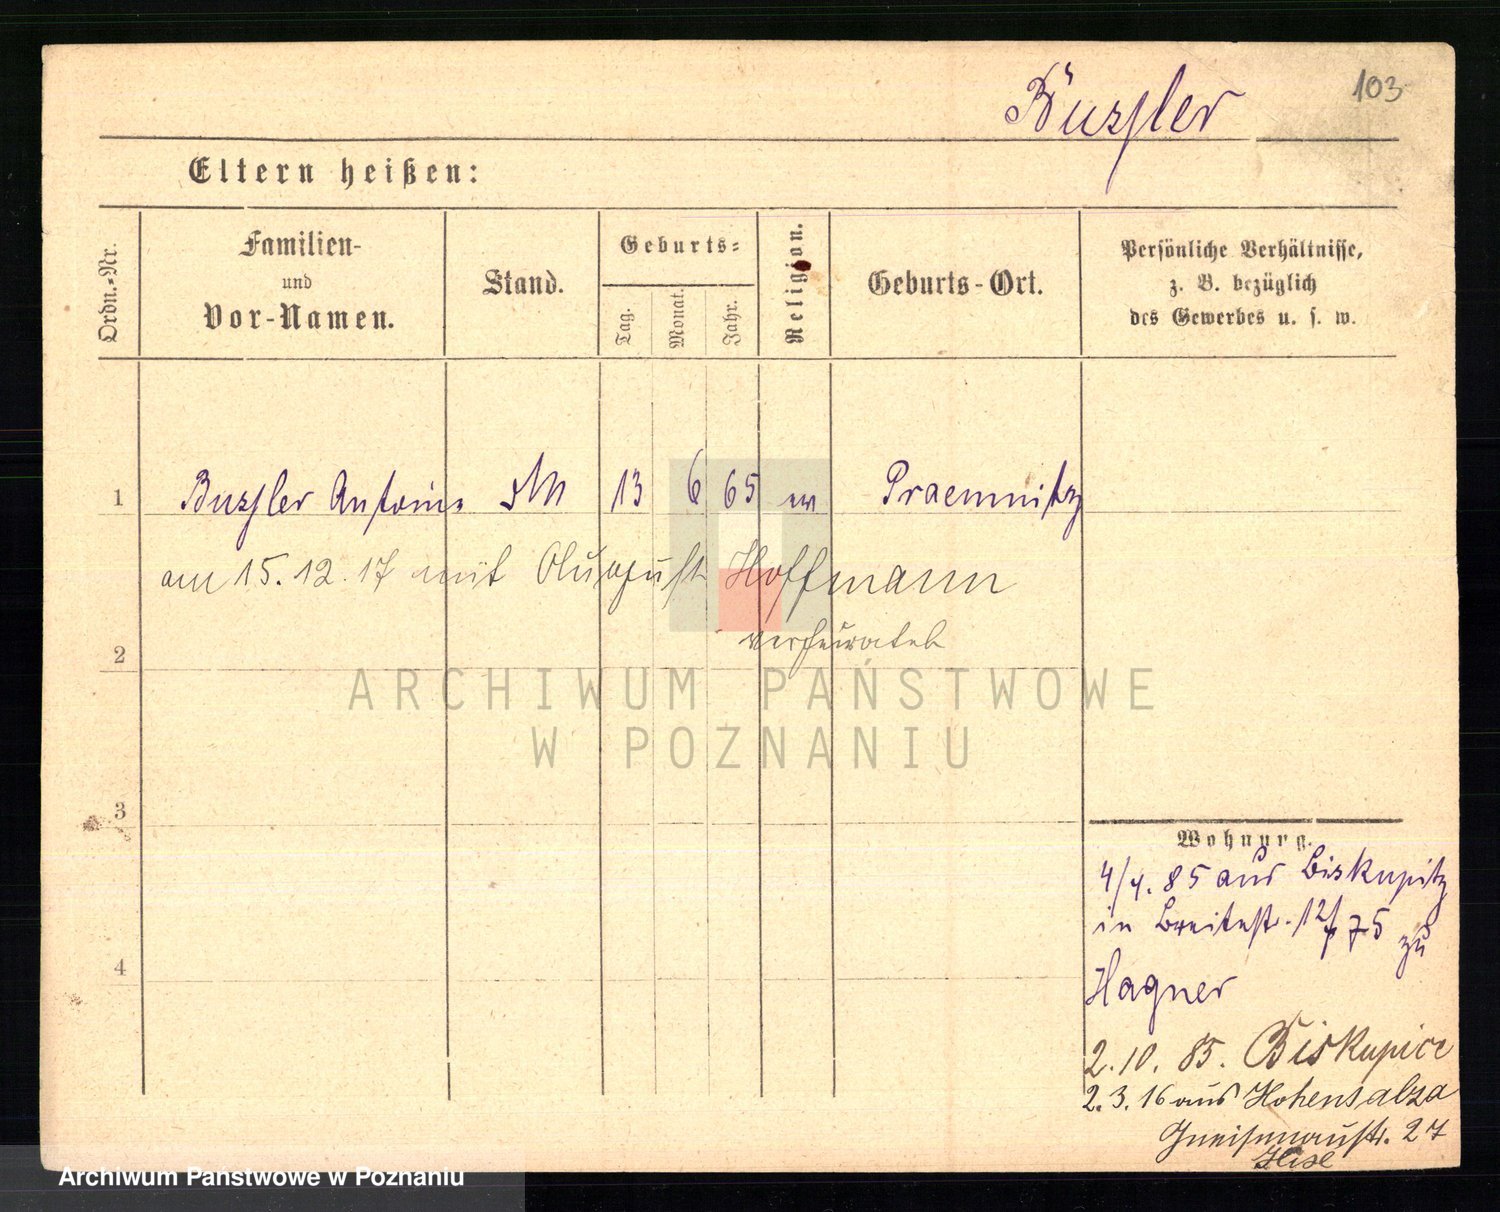 103
Buzsler
Eltern heißen:
Ordn.-Nr.
Familien-
und
Vor-Namen.
Stand.
Geburts-
Tag.
Monat.
Jahr.
Religion.
Geburts-Ort.
Persönliche Verhältnisse,
z. B. bezüglich
des Gewerbes u. s. w.
1 Buzsler Antonie 13 6 65 Praemnitz
am 15.12.17 mit August Hoffmann
verheiratet
2
ARCHIWUM PAŃSTWOWE
W POZNANIU
3
4
Wohnung.
4/4. 85 aus Biskupitz
in Breitestr. 12/ 75 zu
Hagner
2.10. 85. Biskupice
2.3.16 aus Hohensalza
Gneisenaustr. 27
Archiwum Państwowe w Poznaniu